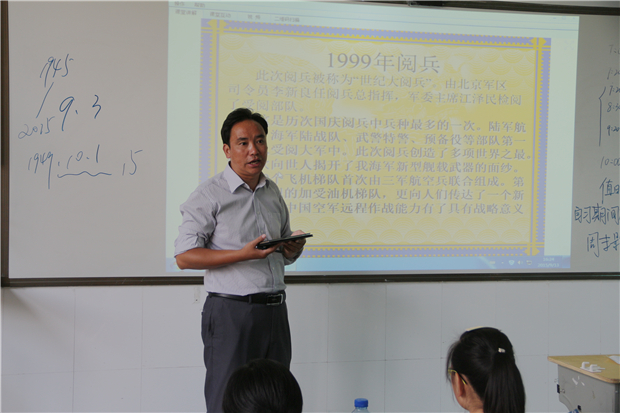 1945
9.3
2015
1949.10.1 15
1999年阅兵
此次阅兵被称为“世纪大阅兵”。由北京军区
司令员李新良任阅兵总指挥，军委主席江泽民检阅
部队。
是历次国庆阅兵中兵种最多的一次。陆军航
海军陆战队、武警特警、预备役等部队第一
受阅大军中。此次阅兵创造了多项世界之最。
向世人揭开了我海军新型舰载武器的面纱。
飞机梯队首次由三军航空兵联合组成。第
的加受油机梯队，更向人们传达了一个新
中国空军远程作战能力有了具有战略意义
自习期间